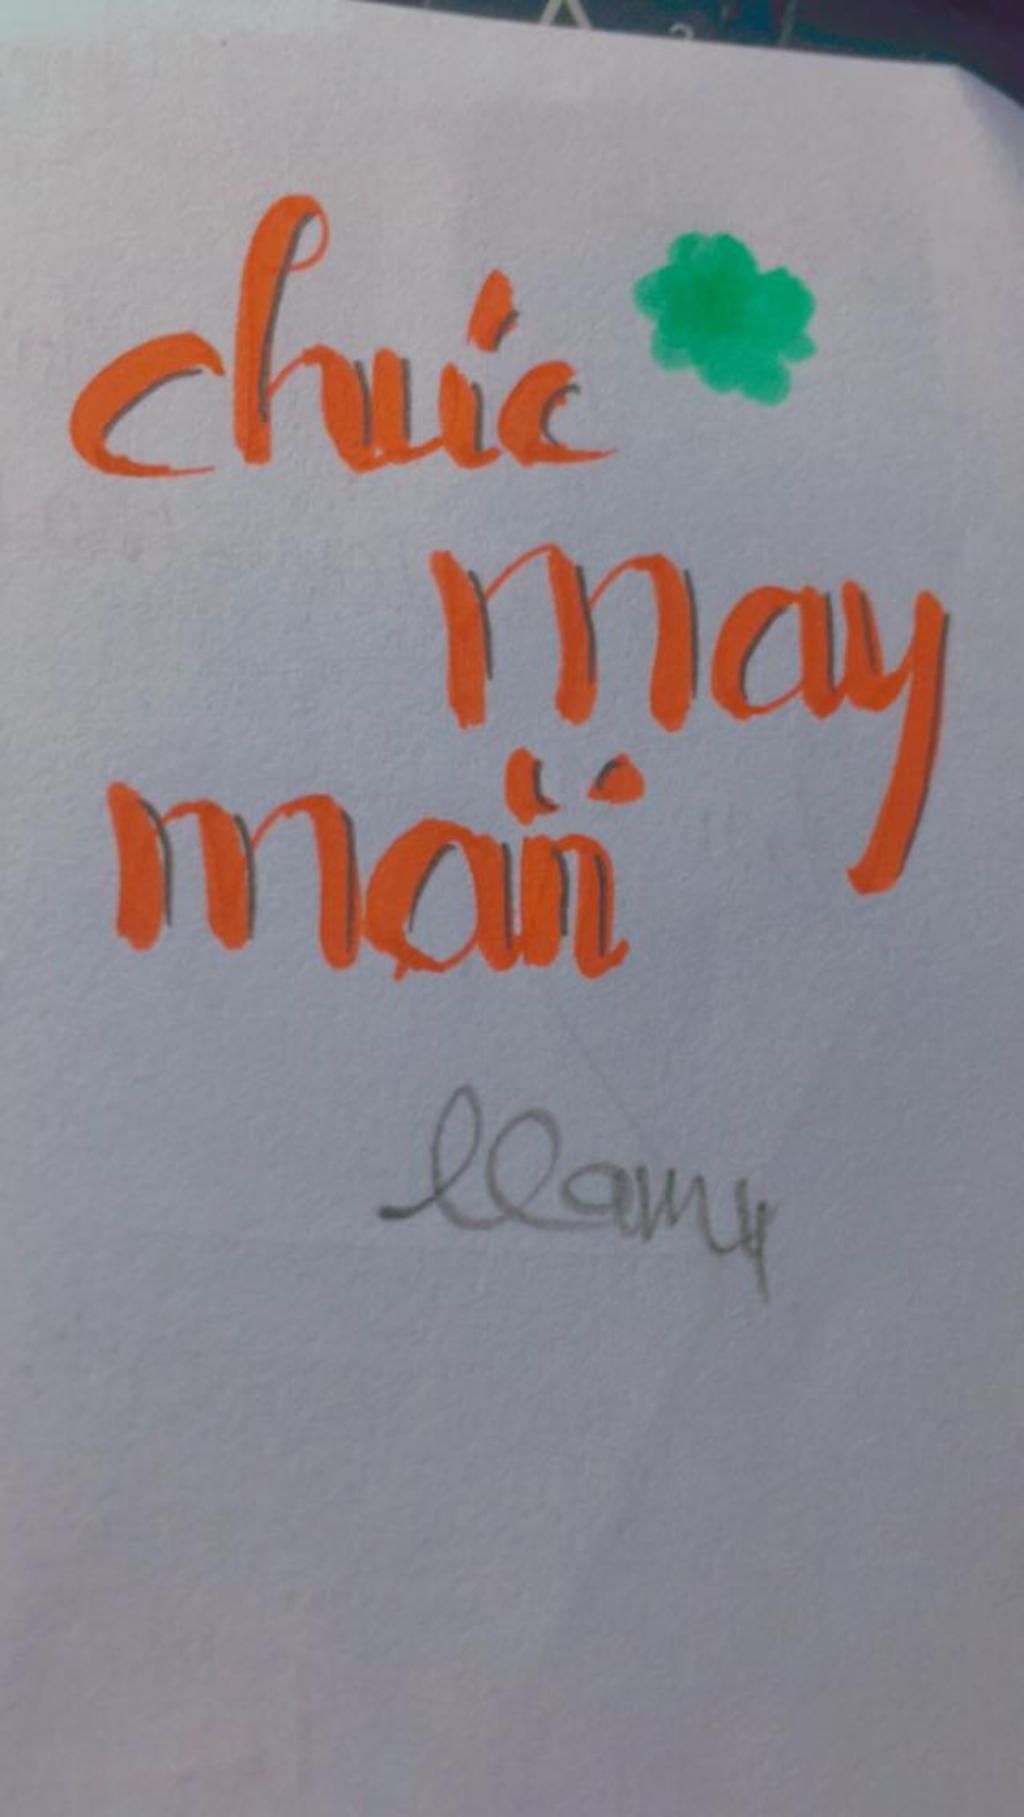 chúc
may
mắn
llamy